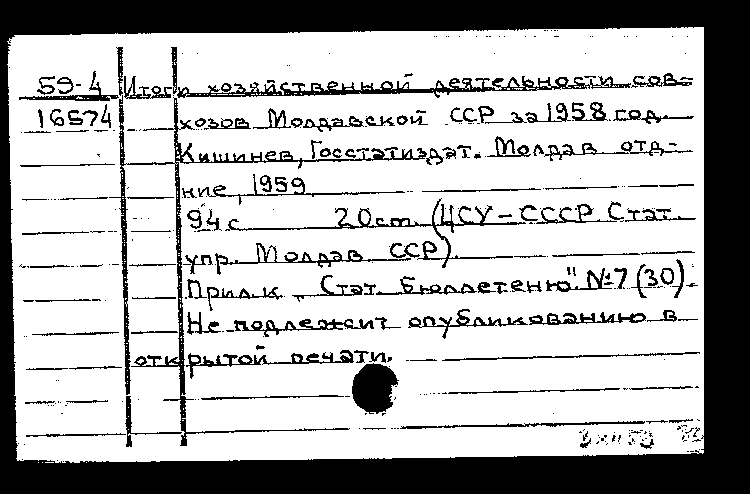 59-4 Итоги хозяйственной деятельности сов=
16574 хозов Молдавской ССР за 1958 год.
Кишинев, Госстатиздат. Молдав отд-
ние, 1959
94с 20ст. (ЦСУ-СССР Стат.
упр. Молдав ССР).
Прил.к „Стат. Бюллетеню". №7 (30).
Не подлежит опубликованию в
открытой печати.